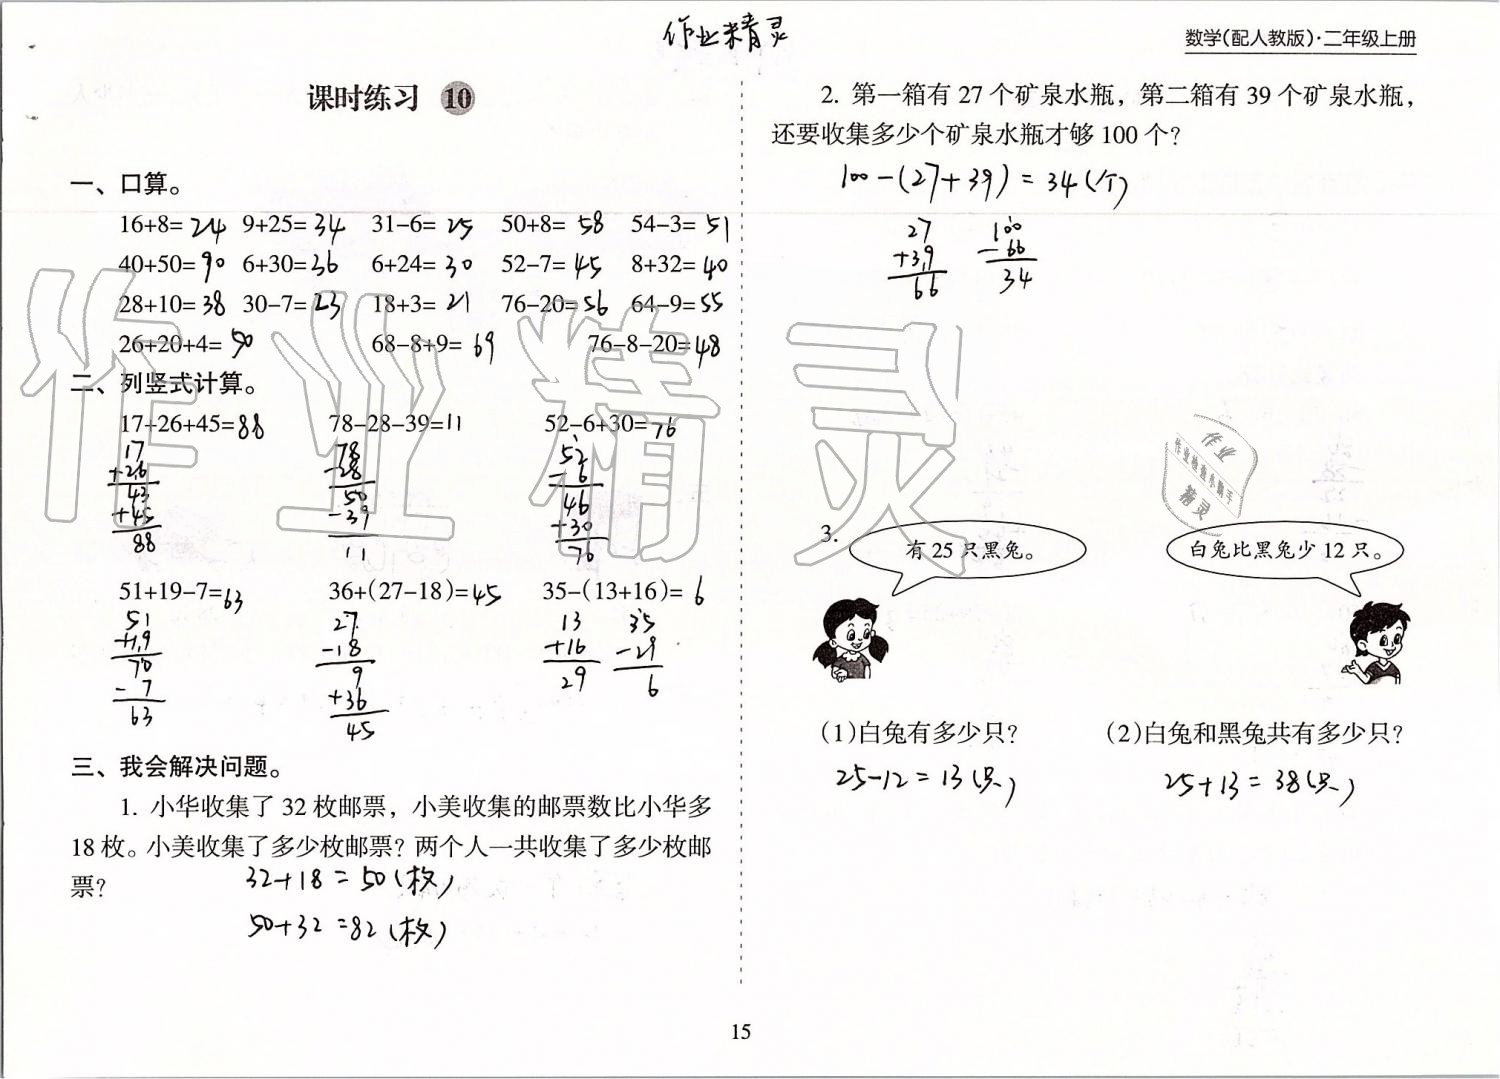 作业精灵
数学(配人教版)·二年级上册
课时练习 10
一、口算。
16+8=24 9+25=34 31-6=25 50+8=58 54-3=51
40+50=90 6+30=36 6+24=30 52-7=45 8+32=40
28+10=38 30-7=23 18+3=21 76-20=56 64-9=55
26+20+4=50 68-8+9=69 76-8-20=48
二、列竖式计算。
17+26+45=88 78-28-39=11 52-6+30=76
17 78 52
+26 -28 -6
43 50 46
+45 -39 +30
88 11 76
51+19-7=63 36+(27-18)=45 35-(13+16)=6
51 27 13 35
+19 -18 +16 -29
70 9 29 6
-7 +36
63 45
三、我会解决问题。
1. 小华收集了 32 枚邮票，小美收集的邮票数比小华多
18 枚。小美收集了多少枚邮票？两个人一共收集了多少枚邮
票？
32+18=50(枚)
50+32=82(枚)
2. 第一箱有 27 个矿泉水瓶，第二箱有 39 个矿泉水瓶，
还要收集多少个矿泉水瓶才够 100 个？
100-(27+39)=34(个)
27 100
+39 -66
66 34
3.
有 25 只黑兔。 白兔比黑兔少 12 只。
(1)白兔有多少只？ (2)白兔和黑兔共有多少只？
25-12=13(只) 25+13=38(只)
作业精灵
作业
作业检查小助手
精灵
15